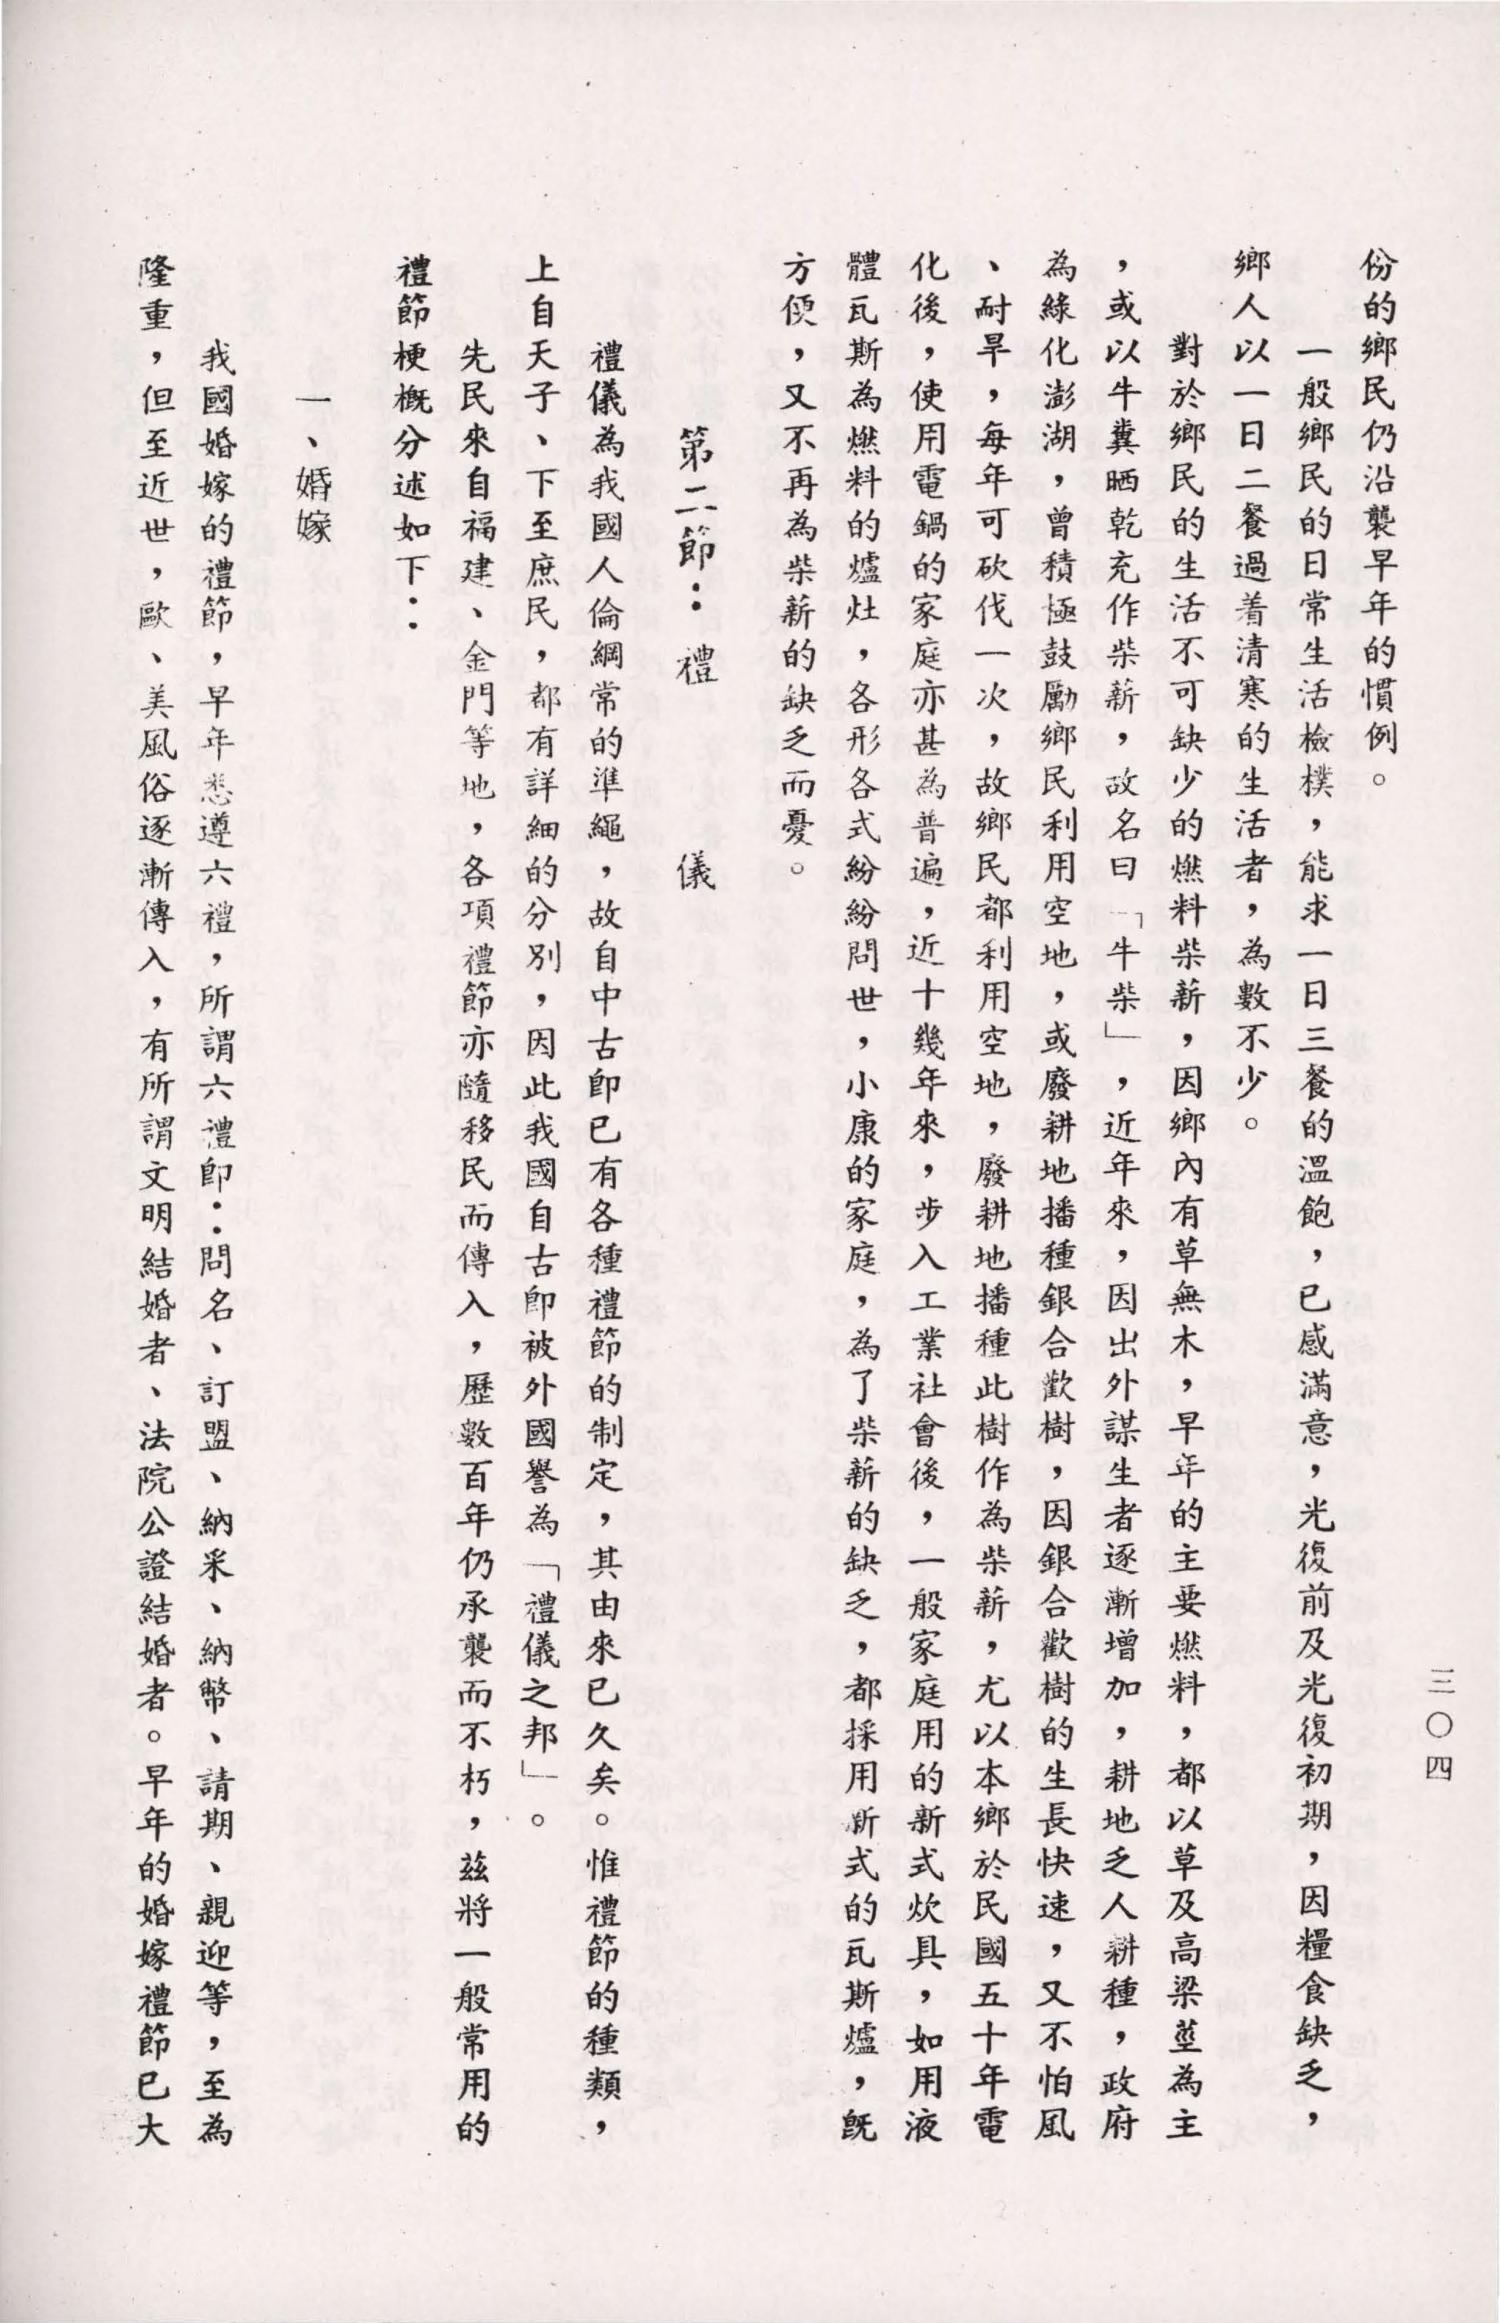 三〇四
份的鄉民仍沿襲早年的慣例。
一般鄉民的日常生活檢樸，能求一日三餐的溫飽，已感滿意，光復前及光復初期，因糧食缺乏，
鄉人以一日二餐過着清寒的生活者，為數不少。
對於鄉民的生活不可缺少的燃料柴薪，因鄉內有草無木，早年的主要燃料，都以草及高梁莖為主
，或以牛糞晒乾充作柴薪，故名曰「牛柴」，近年來，因出外謀生者逐漸增加，耕地乏人耕種，政府
為綠化澎湖，曾積極鼓勵鄉民利用空地，或廢耕地播種銀合歡樹，因銀合歡樹的生長快速，又不怕風
、耐旱，每年可砍伐一次，故鄉民都利用空地，廢耕地播種此樹作為柴薪，尤以本鄉於民國五十年電
化後，使用電鍋的家庭亦甚為普遍，近十幾年來，步入工業社會後，一般家庭用的新式炊具，如用液
體瓦斯為燃料的爐灶，各形各式紛紛問世，小康的家庭，為了柴薪的缺乏，都採用新式的瓦斯爐，既
方便，又不再為柴薪的缺乏而憂。
第二節：禮儀
禮儀為我國人倫綱常的準繩，故自中古卽已有各種禮節的制定，其由來已久矣。惟禮節的種類，
上自天子、下至庶民，都有詳細的分別，因此我國自古卽被外國譽為「禮儀之邦」。
先民來自福建、金門等地，各項禮節亦隨移民而傳入，歷數百年仍承襲而不朽，茲將一般常用的
禮節梗概分述如下：
一、婚嫁
我國婚嫁的禮節，早年悉遵六禮，所謂六禮卽：問名、訂盟、納采、納幣、請期、親迎等，至為
隆重，但至近世，歐、美風俗逐漸傳入，有所謂文明結婚者、法院公證結婚者。早年的婚嫁禮節已大